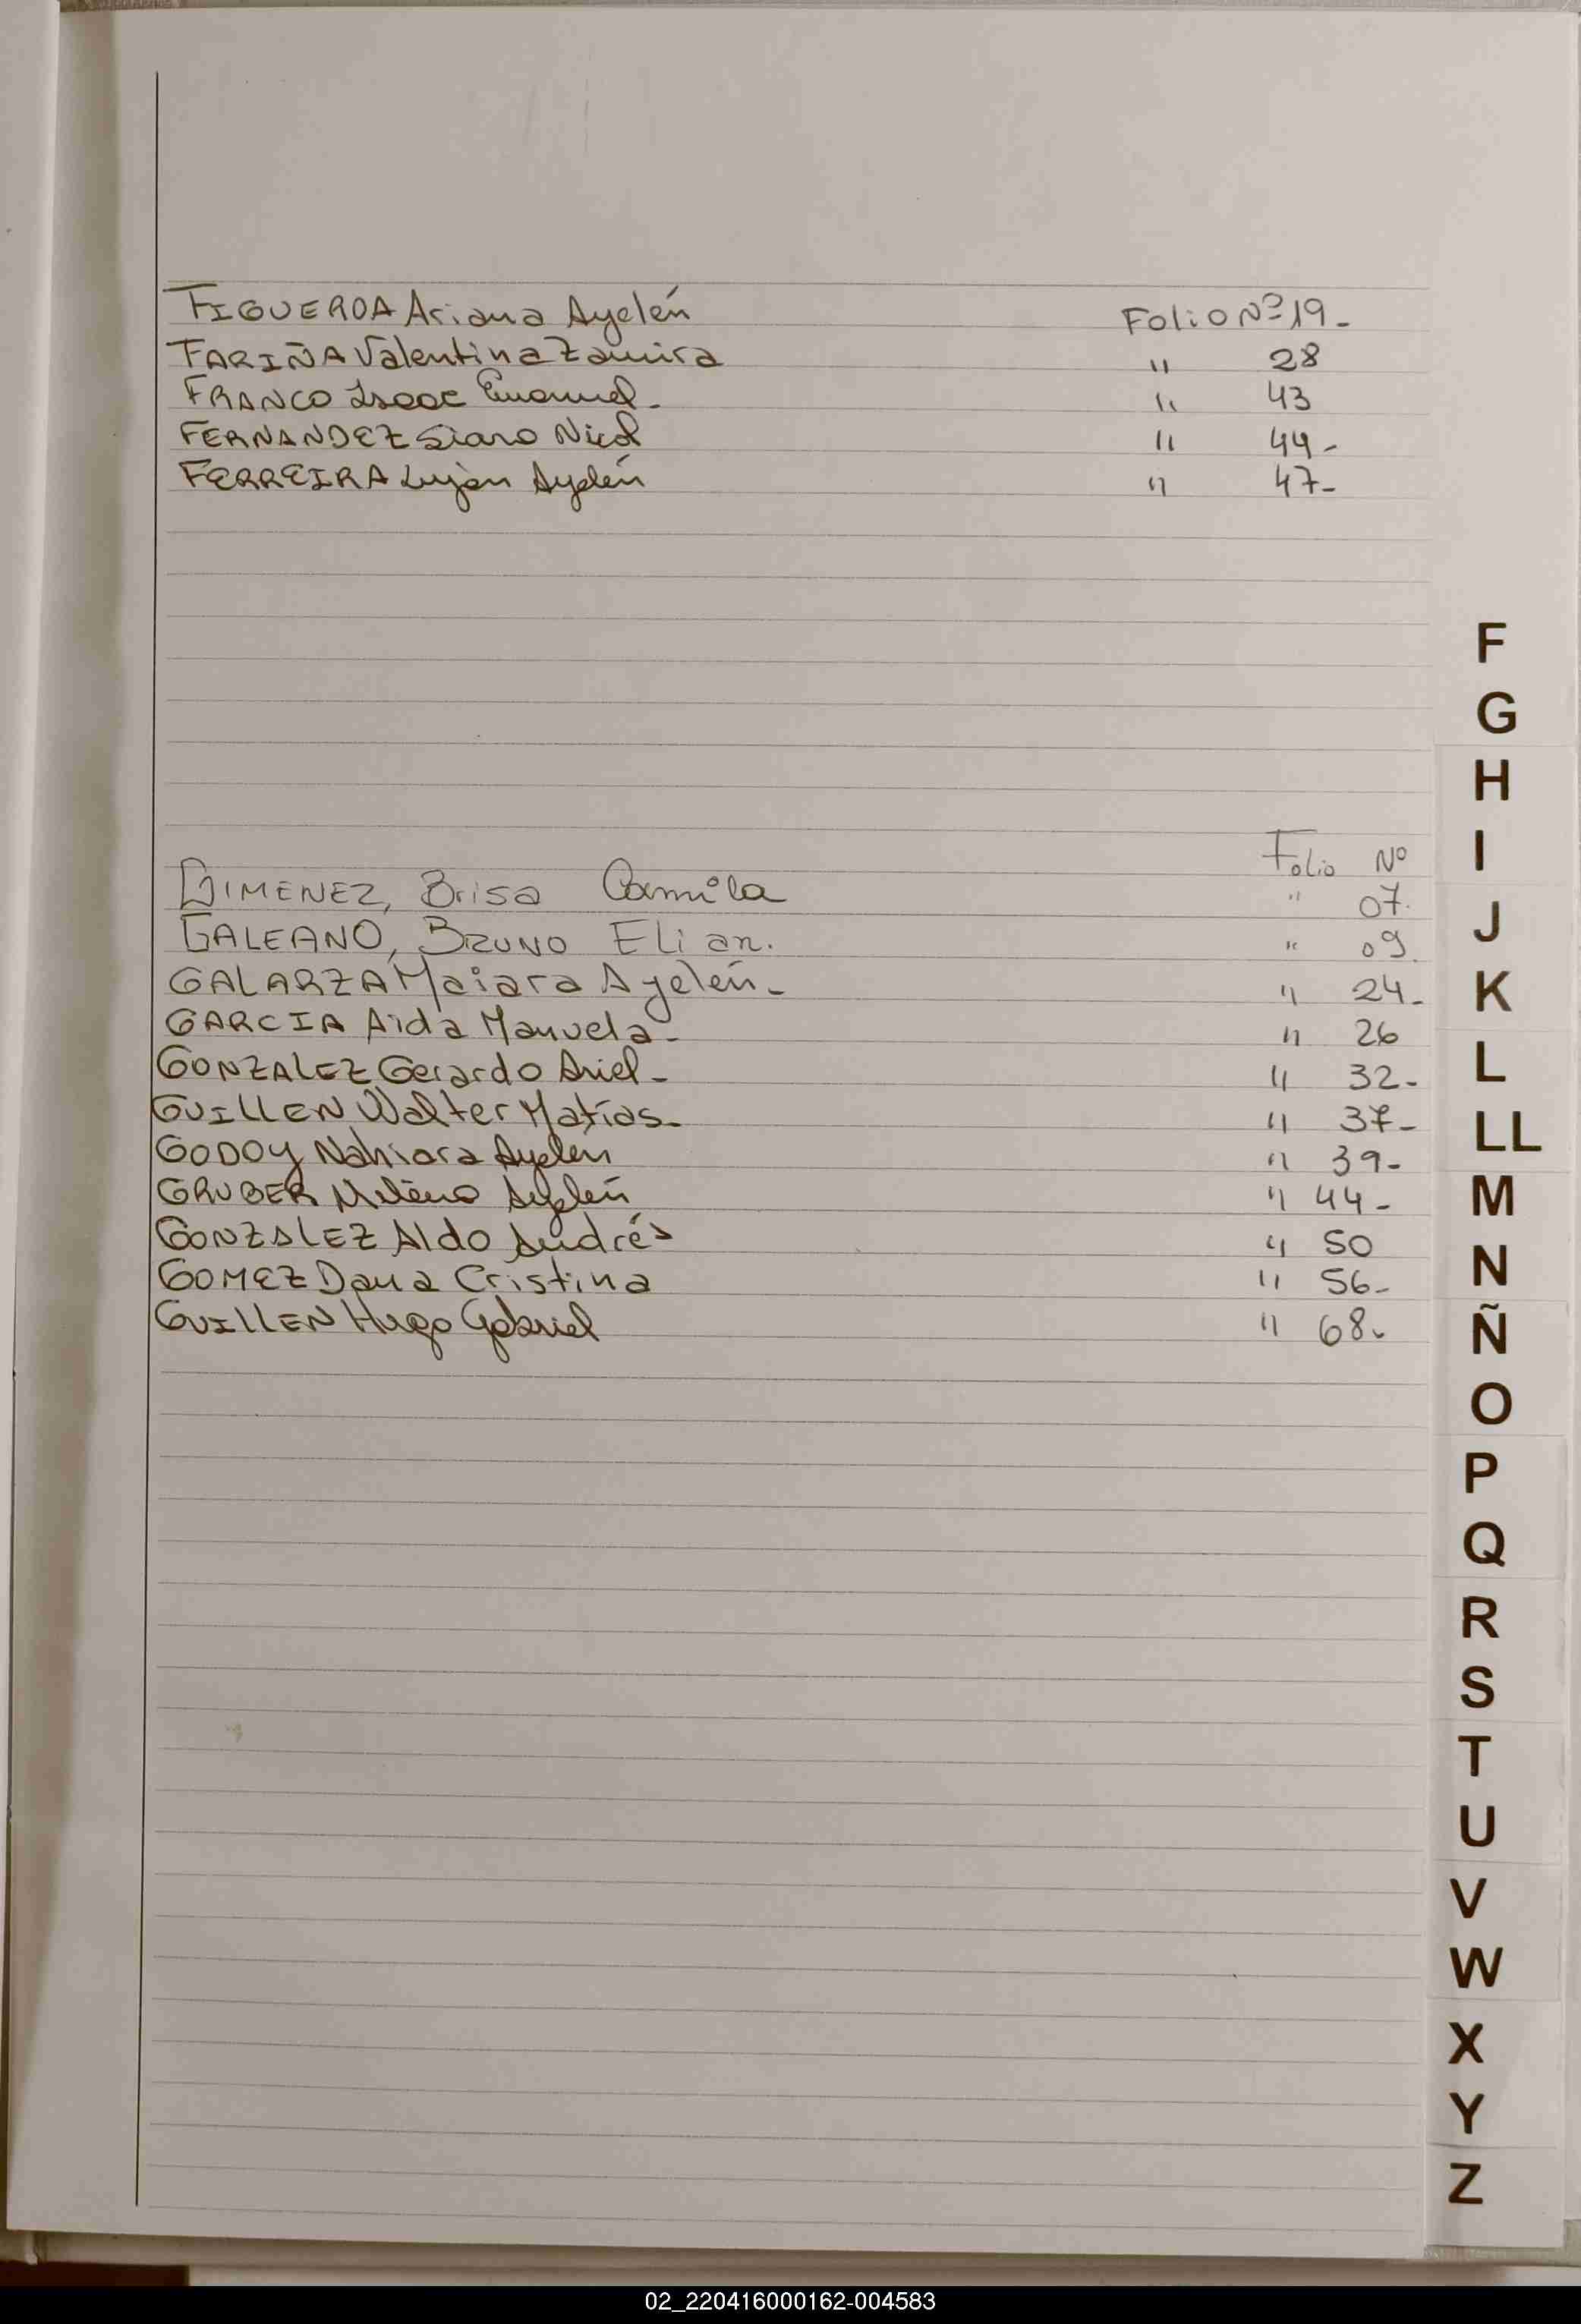 FIGUEROA Ariana Ayelén Folio Nº 19-
FARIÑA Valentina Zamira " 28
FRANCO Isaac Emanuel- " 43
FERNANDEZ Siara Nicol " 44-
FERREIRA Luján Ayelén " 47-
Folio Nº
GIMENEZ, Brisa Camila " 07.
GALEANO, BRUNO Elian. " 09.
GALARZA Maiara Ayelén- " 24-
GARCIA Aida Manuela- " 26
GONZALEZ Gerardo Ariel- " 32-
GUILLEN Walter Matías- " 37-
GODOY Nahiara Ayelén " 39-
GRUBER Ayelén " 44-
GONZALEZ Aldo Andrés " 50
GOMEZ Dana Cristina " 56-
GUILLEN Hugo Gabriel " 68-
F
G
H
I
J
K
L
LL
M
N
Ñ
O
P
Q
R
S
T
U
V
W
X
Y
Z
02_220416000162-004583